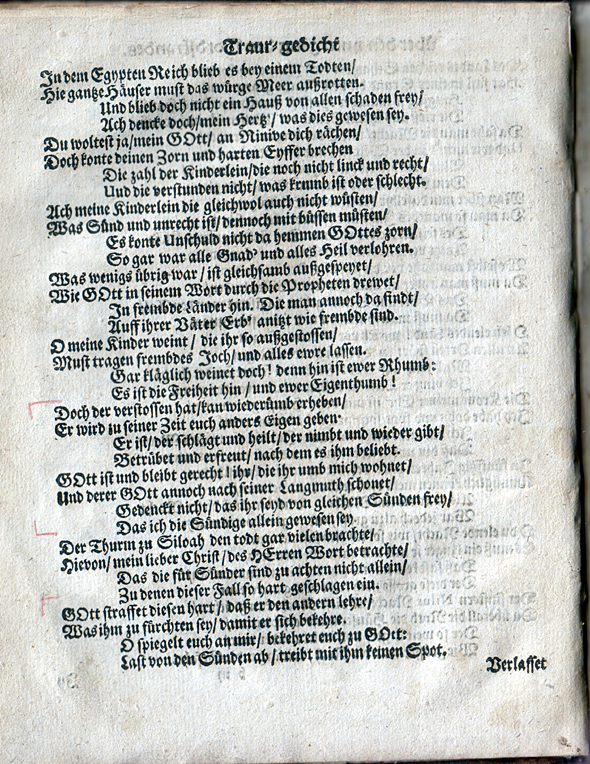 Traur-gedicht
In dem Egypten Reich blieb es bey einem Todten/
Hie gantze Häuser must das würge Meer außrotten.
Und blieb doch nicht ein Hauß von allen schaden frey/
Ach dencke doch/mein Hertz'/ was dies gewesen sey.
Du woltest ja/mein GOtt/ an Ninive dich rächen/
Doch konte deinen Zorn und harten Eyffer brechen
Die zahl der Kinderlein/die noch nicht linck und recht/
Und die verstunden nicht/ was krumb ist oder schlecht.
Ach meine Kinderlein die gleichwol auch nicht wüsten/
Was Sünd und unrecht ist/dennoch mit büssen müsten/
Es konte Unschuld nicht da hemmen GOttes zorn/
So gar war alle Gnad' und alles Heil verlohren.
Was wenigs übrig war/ ist gleichsamb außgespeyet/
Wie GOtt in seinem Wort durch die Propheten drewet/
In frembde Länder hin. Die man annoch da findt/
Auff ihrer Väter Erb' anitzt wie frembde sind.
O meine Kinder weint/ die ihr so außgestossen/
Must tragen frembdes Joch/ und alles ewre lassen.
Gar kläglich weinet doch! denn hin ist ewer Rhumb:
Es ist die Freiheit hin/ und ewer Eigenthumb!
Doch der verstossen hat/kan wiederümb erheben/
Er wird zu seiner Zeit euch anders Eigen geben.
Er ist/ der schlägt und heilt/ der nimbt und wieder gibt/
Betrübet und erfreut/ nach dem es ihm beliebt.
GOtt ist und bleibt gerecht! ihr/ die ihr umb mich wohnet/
Und derer GOtt annoch nach seiner Langmuth schonet/
Gedenckt nicht/ das ihr seyd von gleichen Sünden frey/
Das ich die Sündige allein gewesen sey.
Der Thurm zu Siloah den todt gar vielen brachte/
Hievon/ mein lieber Christ/ des HErren Wort betrachte/
Das die für Sünder sind zu achten nicht allein/
Zu denen dieser Fall so hart geschlagen ein.
GOtt straffet diesen hart/ daß er den andern lehre/
Was ihm zu fürchten sey/ damit er sich bekehre.
O spiegelt euch an mir/ bekehret euch zu GOtt:
Last von den Sünden ab/ treibt mit ihm keinen Spot.
Verlasset